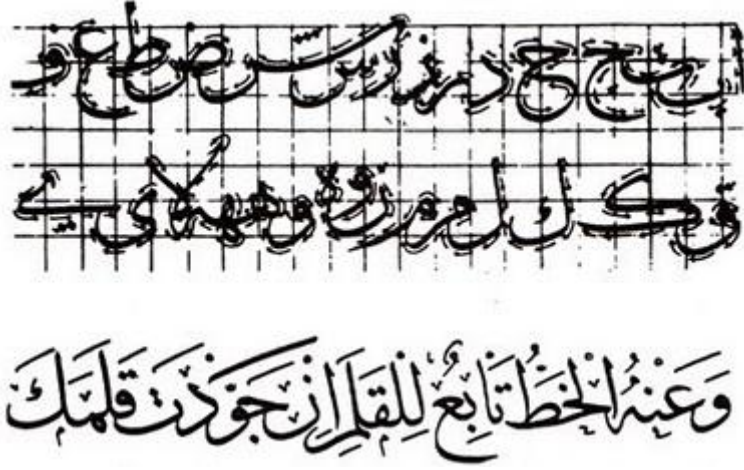 ا ب ح ح د ر ز س س ص ط ع ف
ق ك ل م و ن و ه لا ي
وَعَنْهُ الْخَطُّ تَابِعٌ لِلْقَلَمِ اِنْ جَوَّدْتَ قَلَمَكَ